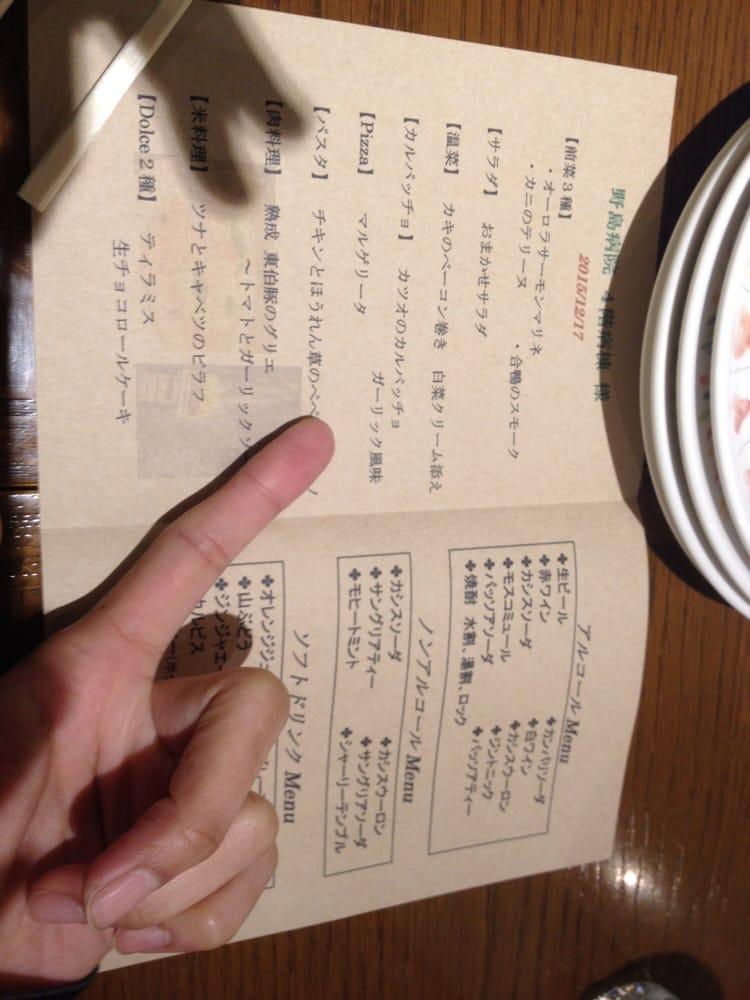 野島病院 4階病棟 様
2015/12/17
【前菜3種】
・オーロラサーモンマリネ
・カニのテリーヌ ・合鴨のスモーク
【サラダ】 おまかせサラダ
【温菜】 カキのベーコン巻き 白菜クリーム添え
【カルパッチョ】 カツオのカルパッチョ
ガーリック風味
【Pizza】 マルゲリータ
【パスタ】 チキンとほうれん草のペペ
【肉料理】 熟成 東伯豚のグリエ
～トマトとガーリックソ
【米料理】 ツナとキャベツのピラフ
【Dolce 2種】 ティラミス
生チョコロールケーキ
アルコール Menu
✤生ビール ✤カンパリソーダ
✤赤ワイン ✤白ワイン
✤カシスソーダ ✤カシスウーロン
✤モスコミュール ✤ジントニック
✤パッソアソーダ ✤パッソアティー
✤焼酎 水割、湯割、ロック
ノンアルコール Menu
✤カシスソーダ ✤カシスウーロン
✤サングリアティー ✤サングリアソーダ
✤モヒートミント ✤シャーリーテンプル
ソフトドリンク Menu
✤オレンジジュ
✤山ぶどう
✤ジンジャエー
カルピス